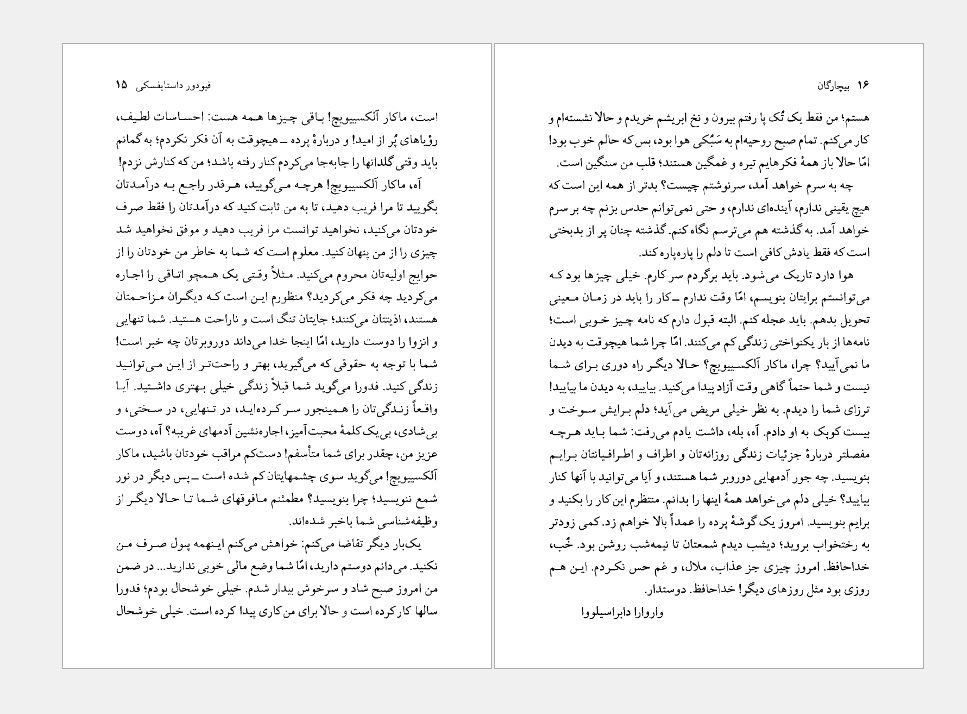 فیودور داستایفسکی ۱۵
است، ماکار آلکسییویچ! باقی چیزها همه هست: احساسات لطیف،
رؤیاهای پُر از امید! و دربارهٔ پرده ــ هیچوقت به آن فکر نکردم؛ به گمانم
باید وقتی گلدانها را جابه‌جا می‌کردم کنار رفته باشد؛ من که کنارش نزدم!
آه، ماکار آلکسییویچ! هرچه می‌گویید، هرقدر راجع به درآمدتان
بگویید تا مرا فریب دهید، تا به من ثابت کنید که درآمدتان را فقط صرف
خودتان می‌کنید، نخواهید توانست مرا فریب دهید و موفق نخواهید شد
چیزی را از من پنهان کنید. معلوم است که شما به خاطر من خودتان را از
حوایج اولیه‌تان محروم می‌کنید. مثلاً وقتی یک همچو اتاقی را اجاره
می‌کردید چه فکر می‌کردید؟ منظورم این است که دیگران مزاحمتان
هستند، اذیتتان می‌کنند؛ جایتان تنگ است و ناراحت هستید. شما تنهایی
و انزوا را دوست دارید، امّا اینجا خدا می‌داند دوروبرتان چه خبر است!
شما با توجه به حقوقی که می‌گیرید، بهتر و راحت‌تر از این می‌توانید
زندگی کنید. فدورا می‌گوید شما قبلاً زندگی خیلی بهتری داشتید. آیا
واقعاً زندگی‌تان را همینجور سر کرده‌اید، در تنهایی، در سختی، و
بی‌شادی، بی‌یک کلمهٔ محبت‌آمیز، اجاره‌نشین آدمهای غریبه؟ آه، دوست
عزیز من، چقدر برای شما متأسفم! دست‌کم مراقب خودتان باشید، ماکار
آلکسییویچ! می‌گوید سوی چشمهایتان کم شده است ــ پس دیگر در نور
شمع ننویسید؛ چرا بنویسید؟ مطمئنم مافوقهای شما تا حالا دیگر از
وظیفه‌شناسی شما باخبر شده‌اند.
یک‌بار دیگر تقاضا می‌کنم: خواهش می‌کنم اینهمه پول صرف من
نکنید. می‌دانم دوستم دارید، امّا شما وضع مالی خوبی ندارید... در ضمن
من امروز صبح شاد و سرخوش بیدار شدم. خیلی خوشحال بودم؛ فدورا
سالها کار کرده است و حالا برای من کاری پیدا کرده است. خیلی خوشحال
۱۶ بیچارگان
هستم؛ من فقط یک تُک پا رفتم بیرون و نخ ابریشم خریدم و حالا نشسته‌ام و
کار می‌کنم. تمام صبح روحیه‌ام به سَبُکی هوا بود، بس که حالم خوب بود!
امّا حالا باز همهٔ فکرهایم تیره و غمگین هستند؛ قلب من سنگین است.
چه به سرم خواهد آمد، سرنوشتم چیست؟ بدتر از همه این است که
هیچ یقینی ندارم، آینده‌ای ندارم، و حتی نمی‌توانم حدس بزنم چه بر سرم
خواهد آمد. به گذشته هم می‌ترسم نگاه کنم. گذشته چنان پر از بدبختی
است که فقط یادش کافی است تا دلم را پاره‌پاره کند.
هوا دارد تاریک می‌شود. باید برگردم سر کارم. خیلی چیزها بود که
می‌توانستم برایتان بنویسم، امّا وقت ندارم ــ کار را باید در زمان معینی
تحویل بدهم. باید عجله کنم. البته قبول دارم که نامه چیز خوبی است؛
نامه‌ها از بار یکنواختی زندگی کم می‌کنند. امّا چرا شما هیچوقت به دیدن
ما نمی‌آیید؟ چرا، ماکار آلکسییویچ؟ حالا دیگر راه دوری برای شما
نیست و شما حتماً گاهی وقت آزاد پیدا می‌کنید. بیایید، به دیدن ما بیایید!
ترزای شما را دیدم. به نظر خیلی مریض می‌آید؛ دلم برایش سوخت و
بیست کوپک به او دادم. آه، بله، داشت یادم می‌رفت: شما باید هرچه
مفصلتر دربارهٔ جزئیات زندگی روزانه‌تان و اطراف و اطرافیانتان برایم
بنویسید. چه جور آدمهایی دوروبر شما هستند، و آیا می‌توانید با آنها کنار
بیایید؟ خیلی دلم می‌خواهد همهٔ اینها را بدانم. منتظرم این کار را بکنید و
برایم بنویسید. امروز یک گوشهٔ پرده را عمداً بالا خواهم زد. کمی زودتر
به رختخواب بروید؛ دیشب دیدم شمعتان تا نیمه‌شب روشن بود. خُب،
خداحافظ. امروز چیزی جز عذاب، ملال، و غم حس نکردم. این هم
روزی بود مثل روزهای دیگر! خداحافظ. دوستدار.
واروارا دابراسیلووا